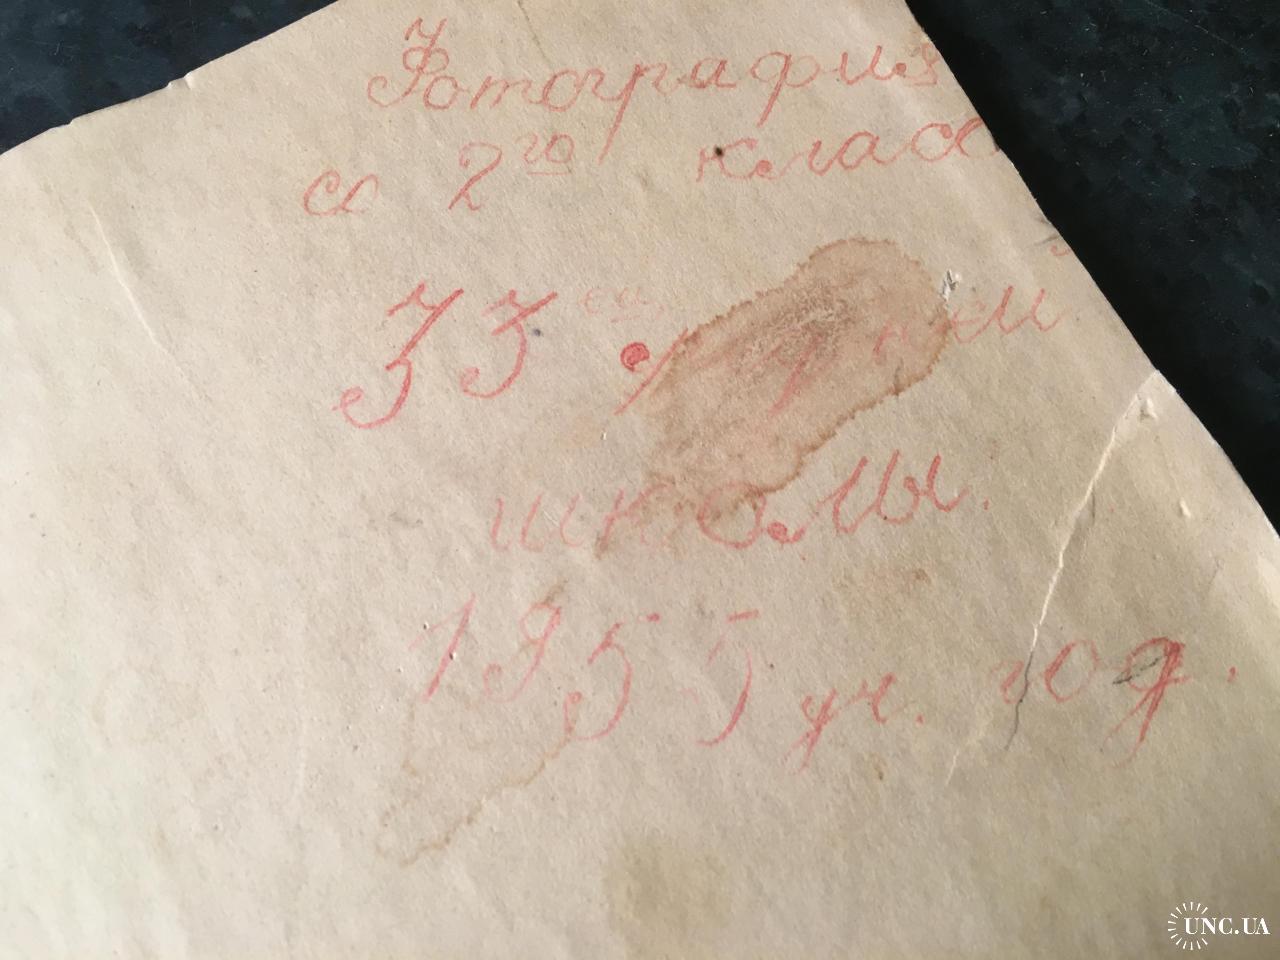 Фотография
со 2го класс
33
школы.
1955 уч. год.
UNC.UA